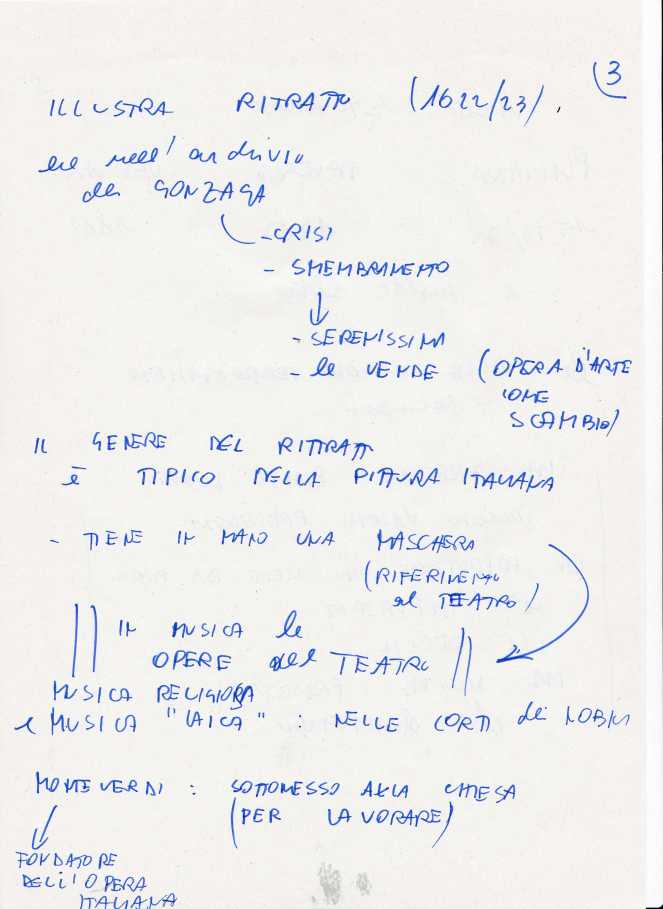 3
ILLUSTRA RITRATTO (1622/23).
nell' archivio
dei GONZAGA
- CRISI
- SMEMBRAMENTO
- SERENISSIMA
- le VENDE (OPERA D'ARTE
COME
SCAMBIO)
IL GENERE DEL RITRATT
È TIPICO DELLA PITTURA ITALIANA
- TIENE IN MANO UNA MASCHERA
(RIFERIMENTO
al TEATRO)
IN MUSICA le
OPERE del TEATRO
MUSICA RELIGIOSA
e MUSICA "LAICA" : NELLE CORTI dei NOBILI
MONTEVERDI : SOTTOMESSO ALLA CHIESA
(PER LAVORARE)
FONDATORE
DELL'OPERA
ITALIANA